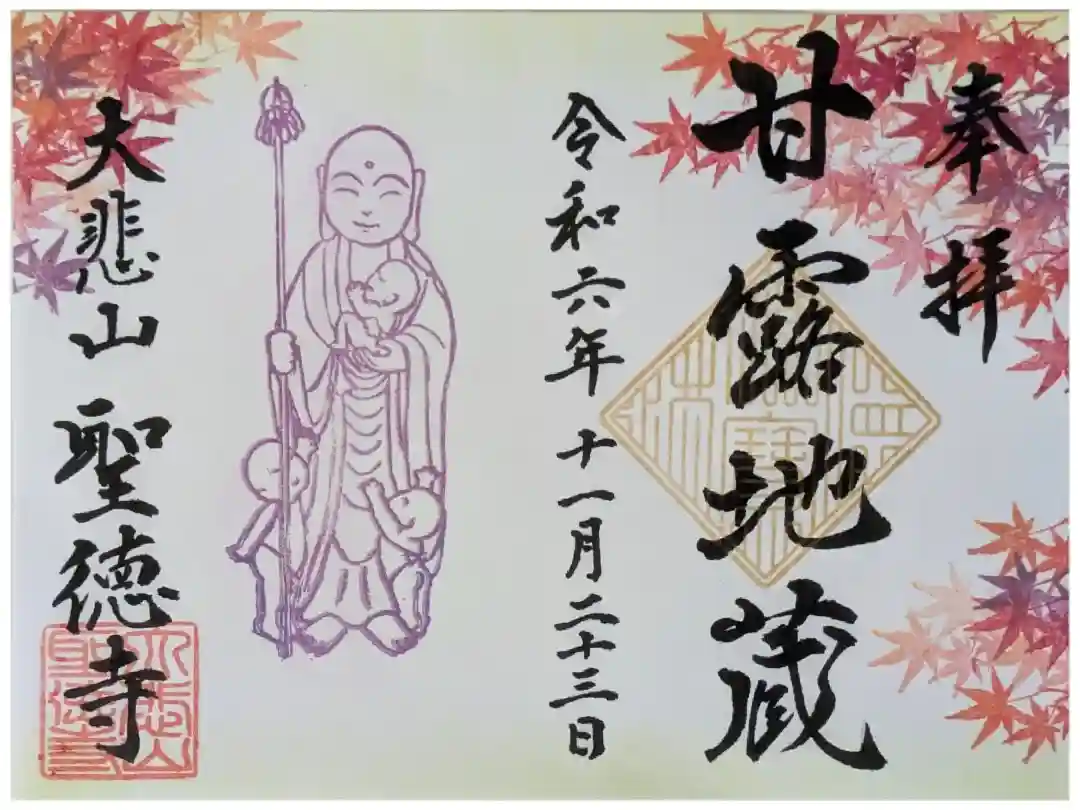 奉拝
甘露地蔵
令和六年 十一月二十三日
大悲山 聖徳寺